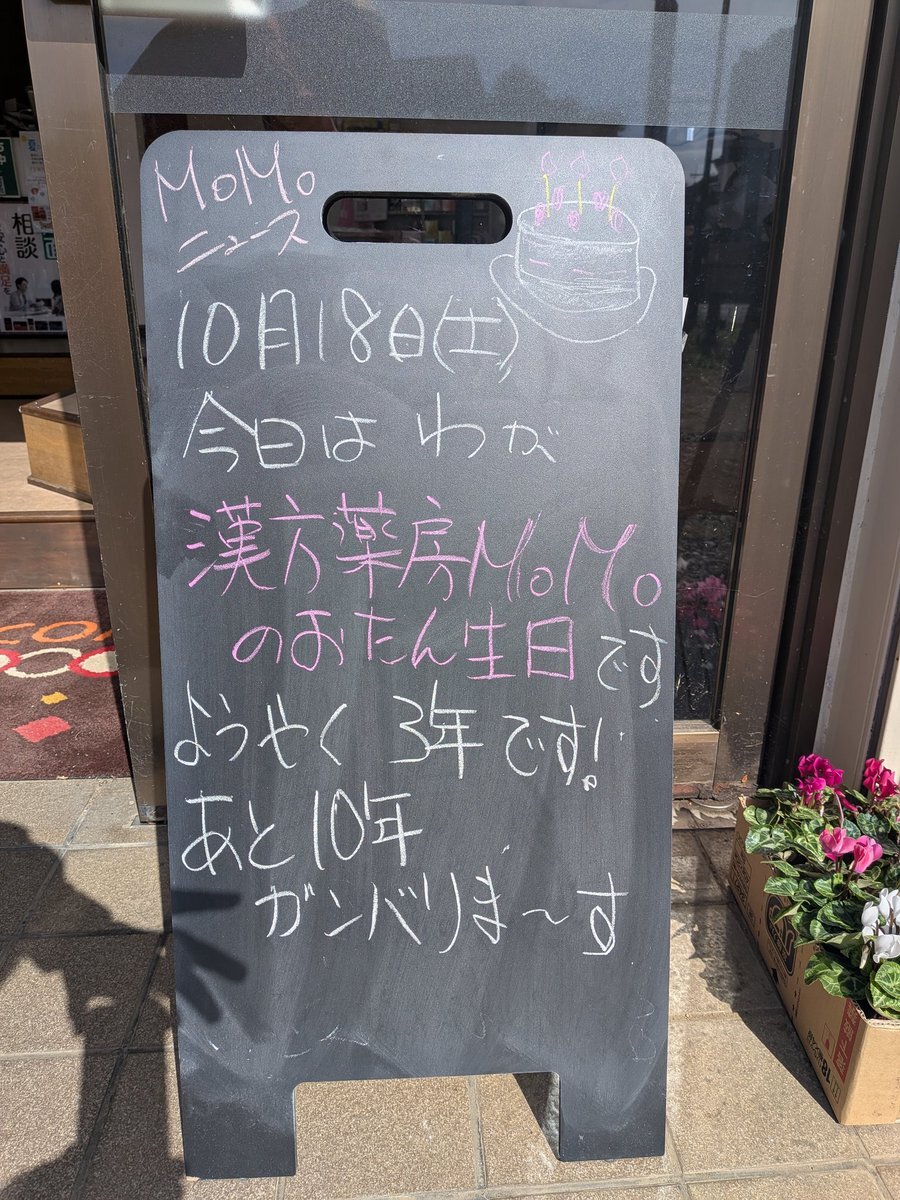 MoMo
ニュース
10月18日(土)
今日は わが
漢方薬房MoMo
のおたん生日です
ようやく 3年です!
あと10年
ガンバりま〜す
相談